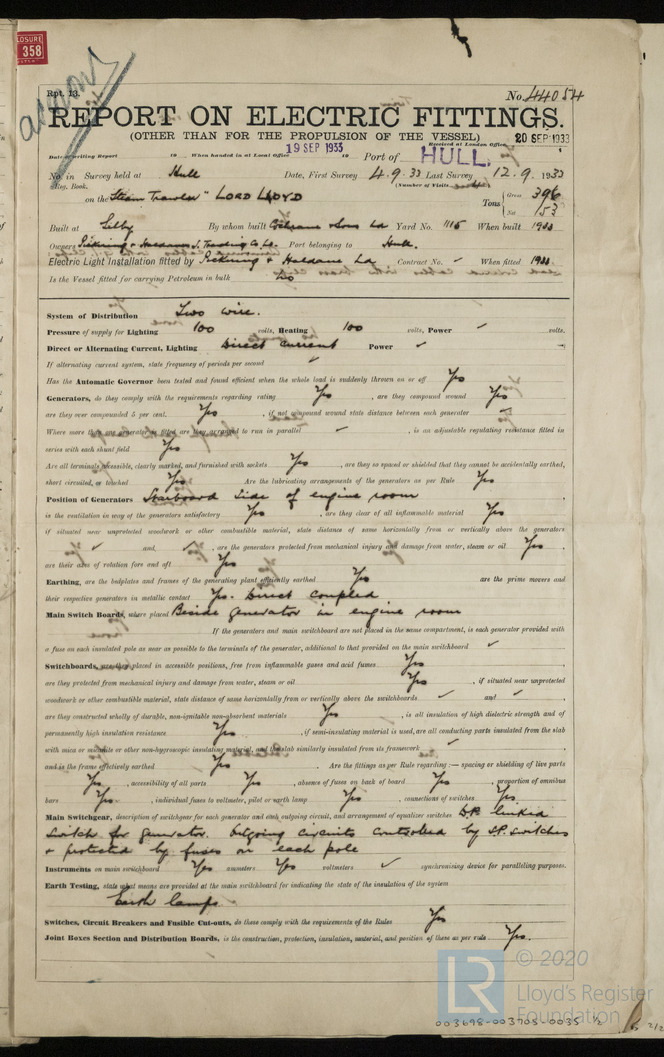 LOSURE
358
Rpt. 13.
No. 44054
REPORT ON ELECTRIC FITTINGS.
(OTHER THAN FOR THE PROPULSION OF THE VESSEL)
20 SEP 1933
Received at London Office
Date of writing Report 19 When handed in at Local Office 19 SEP 1933 19 Port of HULL.
No. in Survey held at Hull Date, First Survey 4.9.33 Last Survey 12.9.1933
Reg. Book. (Number of Visits
on the Steam Trawler "LORD LLOYD Tons { Gross 396
Net 153
Built at Selby By whom built Cochrane & Sons Ld Yard No. 1115 When built 1933
Owners Pickering & Haldanes S. Trading Co. Ld. Port belonging to Hull.
Electric Light Installation fitted by Pickering & Haldane Ld Contract No. ✓ When fitted 1933
Is the Vessel fitted for carrying Petroleum in bulk No
System of Distribution Two wire.
Pressure of supply for Lighting 100 volts, Heating 100 volts, Power ✓ volts.
Direct or Alternating Current, Lighting Direct current Power ✓
If alternating current system, state frequency of periods per second ✓
Has the Automatic Governor been tested and found efficient when the whole load is suddenly thrown on or off Yes
Generators, do they comply with the requirements regarding rating Yes, are they compound wound Yes
are they over compounded 5 per cent. Yes, if not compound wound state distance between each generator ✓
Where more than one generator is fitted are they arranged to run in parallel ✓, is an adjustable regulating resistance fitted in
series with each shunt field Yes
Are all terminals accessible, clearly marked, and furnished with sockets Yes, are they so spaced or shielded that they cannot be accidentally earthed,
short circuited, or touched Yes Are the lubricating arrangements of the generators as per Rule Yes
Position of Generators Starboard side of engine room,
is the ventilation in way of the generators satisfactory Yes, are they clear of all inflammable material Yes
if situated near unprotected woodwork or other combustible material, state distance of same horizontally from or vertically above the generators
✓ and, ✓, are the generators protected from mechanical injury and damage from water, steam or oil Yes,
are their axes of rotation fore and aft Yes
Earthing, are the bedplates and frames of the generating plant efficiently earthed Yes are the prime movers and
their respective generators in metallic contact Yes. Direct coupled
Main Switch Boards, where placed Beside generator in engine room
If the generators and main switchboard are not placed in the same compartment, is each generator provided with
a fuse on each insulated pole as near as possible to the terminals of the generator, additional to that provided on the main switchboard ✓
Switchboards, are they placed in accessible positions, free from inflammable gases and acid fumes Yes,
are they protected from mechanical injury and damage from water, steam or oil Yes, if situated near unprotected
woodwork or other combustible material, state distance of same horizontally from or vertically above the switchboards ✓ and ✓,
are they constructed wholly of durable, non-ignitable non-absorbent materials Yes, is all insulation of high dielectric strength and of
permanently high insulation resistance Yes, if semi-insulating material is used, are all conducting parts insulated from the slab
with mica or micanite or other non-hygroscopic insulating material, and the slab similarly insulated from its framework ✓,
and is the frame effectively earthed Yes. Are the fittings as per Rule regarding :— spacing or shielding of live parts
Yes, accessibility of all parts Yes, absence of fuses on back of board Yes, proportion of omnibus
bars Yes, individual fuses to voltmeter, pilot or earth lamp Yes, connections of switches Yes.
Main Switchgear, description of switchgear for each generator and each outgoing circuit, and arrangement of equalizer switches D.P. linked
switch for generator. Outgoing circuits controlled by S.P. switches
& protected by fuses on each pole
Instruments on main switchboard Yes ammeters Yes voltmeters ✓ synchronising device for paralleling purposes.
Earth Testing, state what means are provided at the main switchboard for indicating the state of the insulation of the system
Earth lamps
Switches, Circuit Breakers and Fusible Cut-outs, do these comply with the requirements of the Rules Yes
Joint Boxes Section and Distribution Boards, is the construction, protection, insulation, material, and position of these as per rule Yes.
© 2020
LR
Lloyd's Register
Foundation
003698-003705-0035 1/2